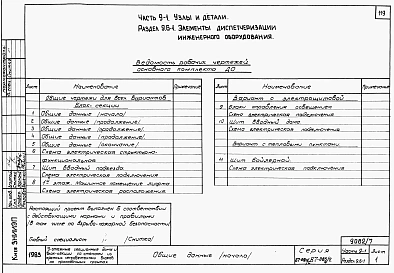 119
Часть 9-1. Узлы и детали.
Раздел 9.6-1. Элементы диспетчеризации
инженерного оборудования.
Ведомость рабочих чертежей
основного комплекта ДО
Лист
Наименование
Примечание
Общие чертежи для всех вариантов
Блок-секции
1 Общие данные /начало/
2 Общие данные /продолжение/
3 Общие данные /продолжение/
4 Общие данные /продолжение/
5 Общие данные /окончание/
6 Схема электрическая структурно-
функциональная
7 Щит вводный подвезда
Схема электрическая подключения
8 1й этаж. Машинное помещение лифта
Схема электрическая расположения.
Лист
Наименование
Примечание
Вариант с электрощитовой
9 Блоки управления освещением
Схема электрическая подключения
10 Щит вводный дома
Схема электрическая подключения
Вариант с тепловыми пунктами.
11 Щит бойлерной.
Схема электрическая подключения
Настоящий проект выполнен в соответствии
с действующими нормами и правилами
/в том числе по взрыво-пожарной безопасности/
Главный специалист /Снитко/
Киев ЗНИИЭП
1985
Общие данные /начало/
Серия
9082/7
Часть 9-1
Раздел 9.6-1
Лист
1